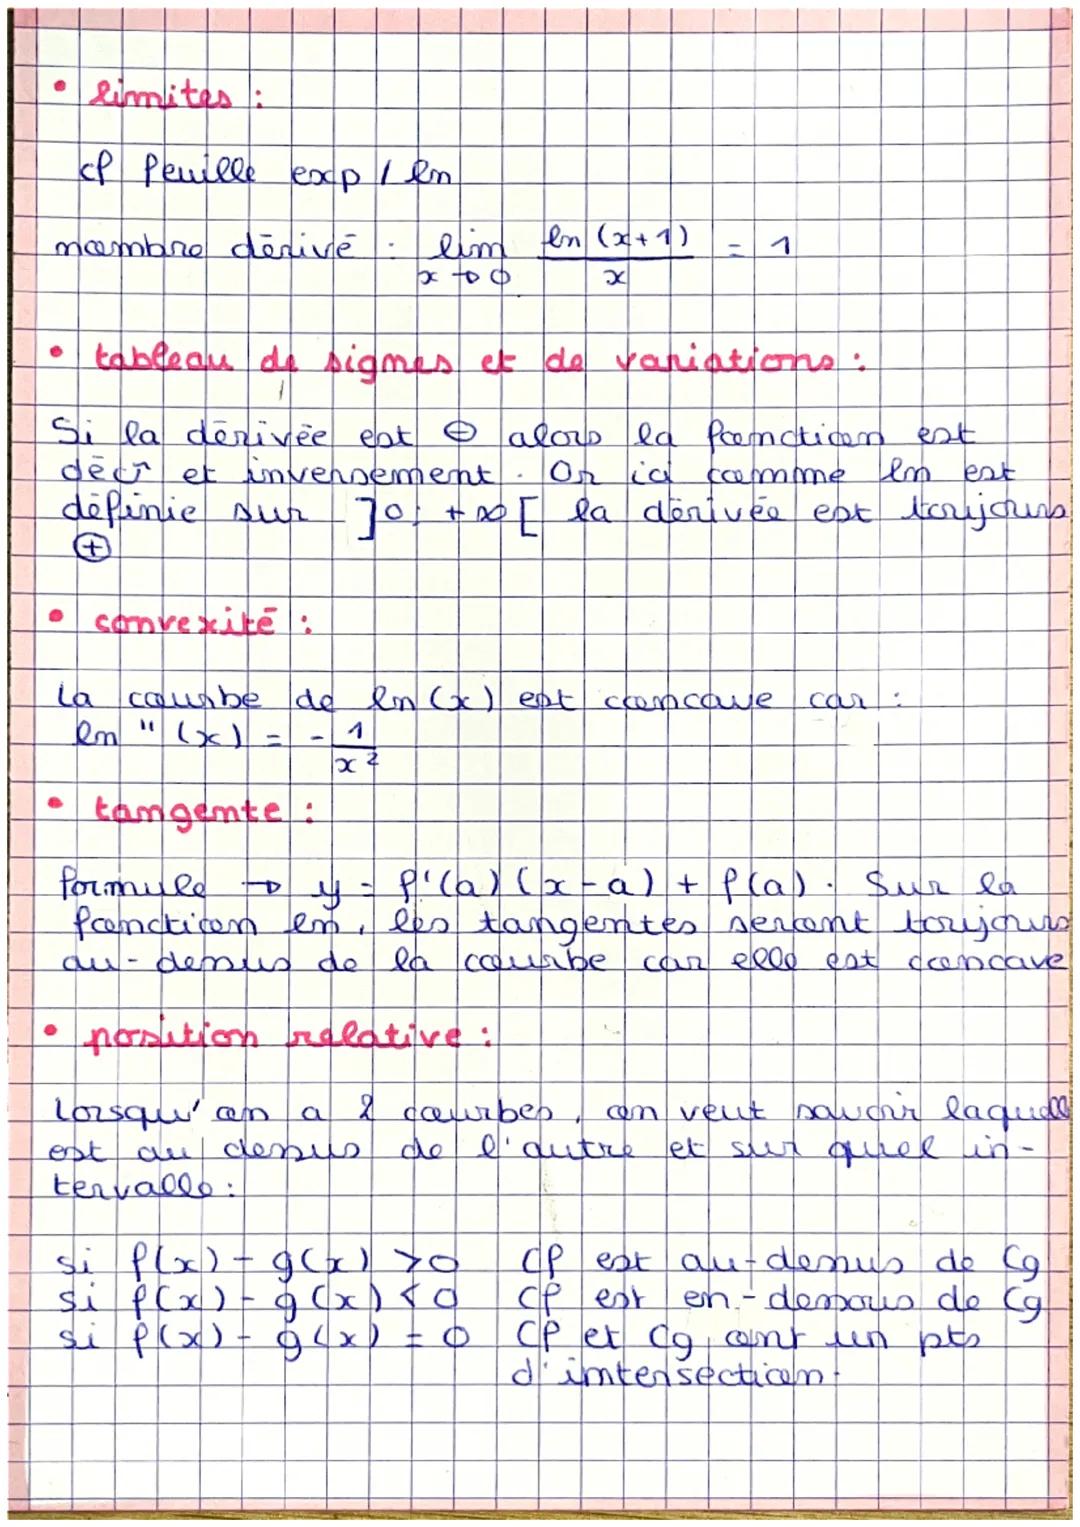 • limites :
cf feuille exp / ln
nombre dérivé : lim ln (x+1) = 1
x → 0 x
• tableau de signes et de variations :
Si la dérivée est ⊖ alors la fonction est
décr et inversement. Or ici comme ln est
définie sur ]0; +∞[ la dérivée est toujours
⊕
• convexité :
La courbe de ln (x) est concave car :
ln " (x) = - 1
x²
• tangente :
formule → y = f'(a) (x-a) + f(a). Sur la
fonction ln, les tangentes seront toujours
au-dessus de la courbe car elle est concave
• position relative :
Lorsqu'on a 2 courbes, on veut savoir laquelle
est au dessus de l'autre et sur quel in-
tervalle :
si f(x) - g(x) > 0 Cf est au-dessus de Cg
si f(x) - g(x) < 0 Cf est en-dessous de Cg
si f(x) - g(x) = 0 Cf et Cg ont un pts
d'intersection.